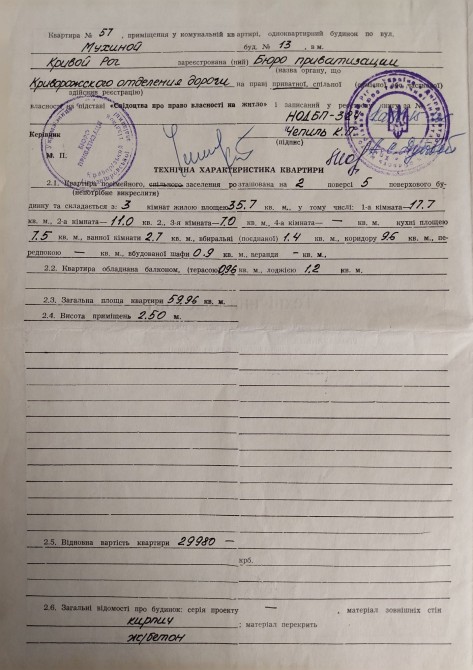 Квартира № 57, приміщення у комунальній квартирі, одноквартирний будинок по вул.
Мухиной буд. № 13, в м.
Кривой Рог зареєстрована (ний) Бюро приватизации
(назва органу, що
Криворожского отделения дороги на праві приватної, спільної
здійснив реєстрацію)
власності на підставі «Свідоцтва про право власності на житло» і записаний у
НОДБП-324
Керівник Чепиль К.П.
М. П. (підпис)
ТЕХНІЧНА ХАРАКТЕРИСТИКА КВАРТИРИ
2.1. Квартира посімейного, спільного заселення розташована на 2 поверсі 5 поверхового бу-
(непотрібне викреслити)
динку та складається з: 3 кімнат жилою площею 35.7 кв. м., у тому числі: 1-а кімната— 17.7
кв. м., 2-а кімната— 11.0 кв. 2., 3-я кімната— 7.0 кв. м., 4-а кімната— — кв. м. кухні площею
7.5 кв. м., ванної кімнати 2.7 кв. м., вбиральні (поєднаної) 1.4 кв. м., коридору 9.6 кв. м., пе-
редпокою — кв. м., вбудованої шафи 0.9 кв. м., веранди — кв. м.,
2.2. Квартира обладнана балконом, (терасою) 0,96 кв. м., лоджією 1,2 кв. м.
2.3. Загальна площа квартири 59,96 кв. м.
2.4. Висота приміщень 2.50 м.
2.5. Відновна вартість квартири 29980 —
крб.
2.6. Загальні відомості про будинок: серія проекту — , матеріал зовнішніх стін
кирпич ; матеріал перекрить
ж/бетон